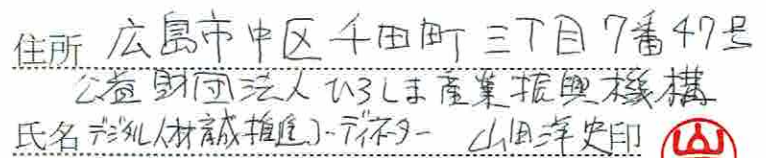 住所 広島市中区千田町三丁目7番47号
公益財団法人ひろしま産業振興機構
氏名 デジタル人材育成推進コーディネーター 山田洋史印
山